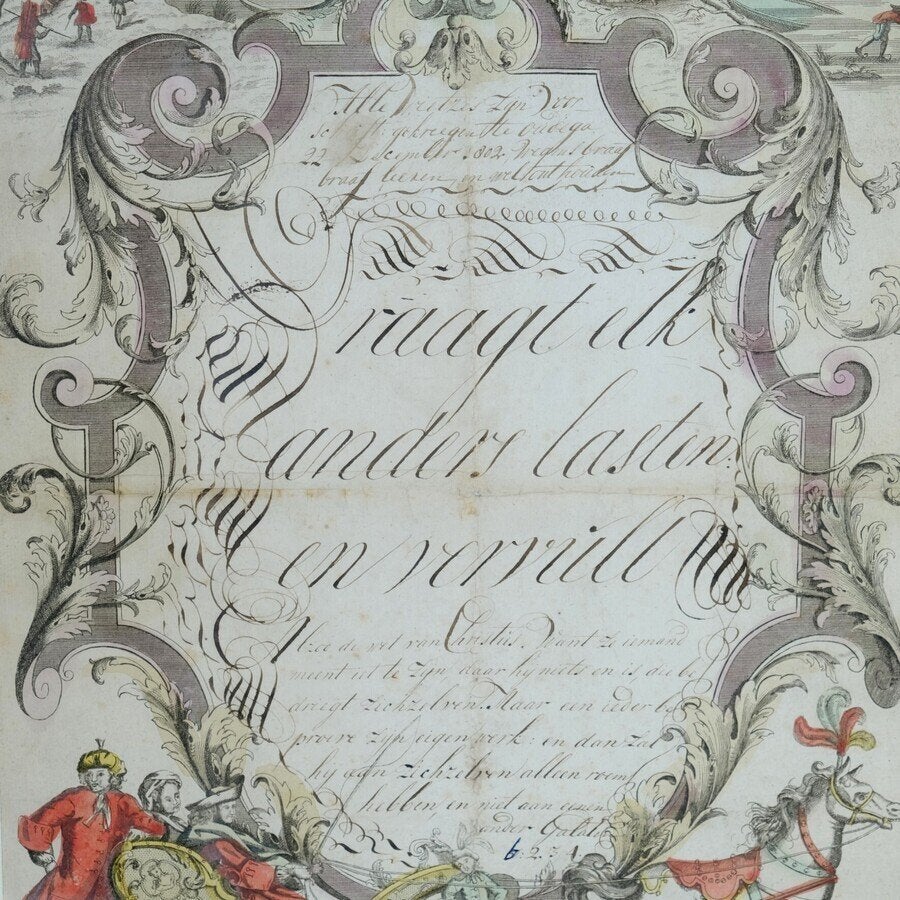 Alle
22 December 1802
braaf leezen en wel onthouden
Draagt elk
anders lasten:
en vervult
Alzoo de wet van Christus. Want zo iemand
meent iet te zyn, daar hy niets en is, die be
driegt zichzelven. Maar een ieder be
proeve zyn eigen werk: en dan zal
hy aan zichzelven alleen roem
hebben, en niet aan eenen
ander Galaten
6.2.3.4